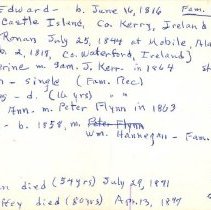 Edward - b. June 16, 1816 Fam.
Castle Island, Co. Kerry, Ireland
Ronan July 25, 1844 at Mobile, Ala
b. 2, 1818, Co. Waterford, Ireland]
erine m. Jam. J. Kerr in 1864 st
n - single (Fam. Rec)
s - d. (16 yrs) " "
Ann. m. Peter Flynn in 1863
- b. 1858, m. Peter Flynn
Wm. Hannegan - Fam.
n died (54 yrs) July 29, 1871
ffey died (80 yrs) Apr. 13, 1897